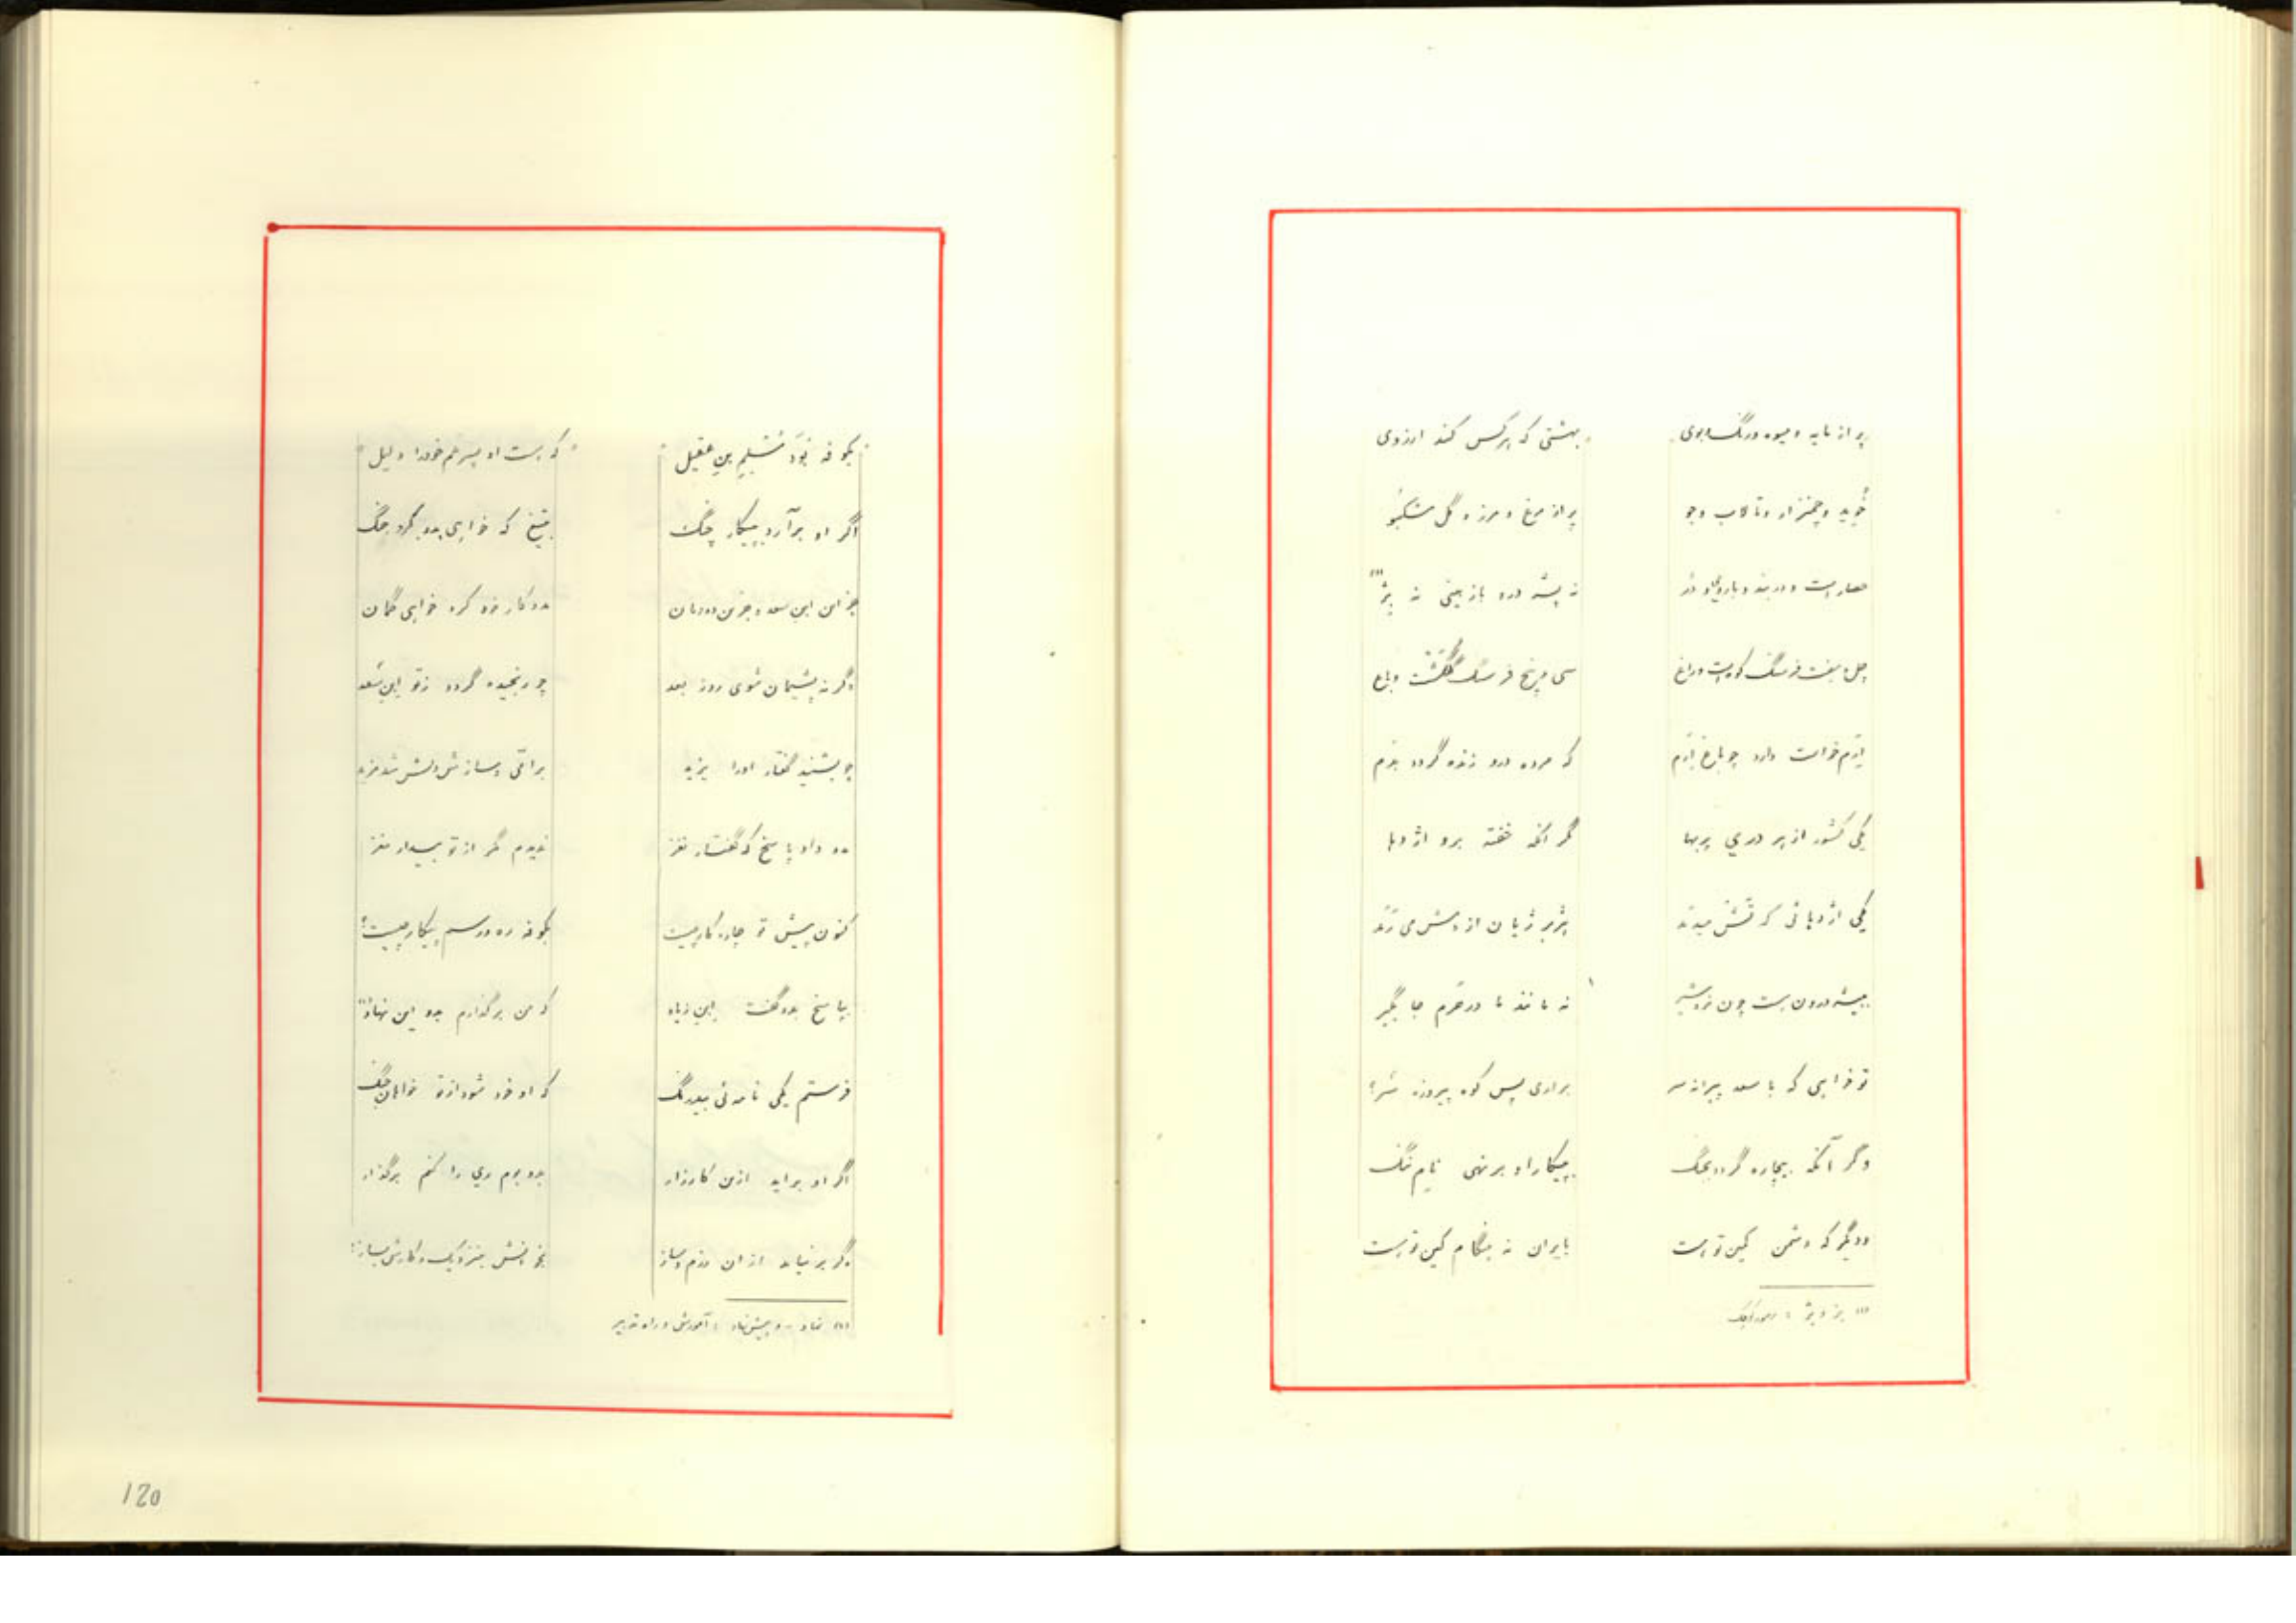 پر از مایه و میوه و رنگ و بوی
بهشتی که هر کس کند آرزوی
خُوید و چمنزار و تالاب و جو
پر از مرغ و مرز و گل مشکبو
نه پشه درو باز بینی نه پژ (۱)
چل و هفت فرسنگ کوهست و راغ
سی و پنج فرسنگ گلگشت و باغ
اِرَم خواست دارد چو باغ اِرَم
که مرده درو زنده گردد بدَم
یکی کشور از بر دری پر بها
مگر آنکه خفته برو اژدها
یکی اژدهائی کز آتش میدمد
هژبر ژیان از دمش می رمد
ببیشه درون است چون نره شیر
تو خواهی که با سعد پیرانه سر
برآری پس کوه پیروزه سر؟
وگر آنکه بیچاره گردد بجنگ
بپیکار او بر نهی نام ننگ
و دیگر که دشمن کمین تو است
بایران نه هنگام کین تو است
(۱) پژ و پژ :
"بکوفه بُوَد مُسْلِم بن عقیل"
"که هست او پسر عم خود را دلیل"
اگر او برآرد بپیکار چنگ
بتیغ که خواهی بدو کرد جنگ
جز این ابن سعد و جز این دودمان
مددکار خود کرد خواهی گمان
وگرنه پشیمان شوی روز بعد
چو رنجیده گردد ز تو ابن سَعد
چو بشنید گفتار او را یزید
بدو داد پاسخ که گفتار نغز
ندیدم مگر از تو بیدار مغز
کنون پیش تو چاره کار چیست
بکوفه ره و رسم پیکار چیست؟
بپاسخ بدو گفت ابن زیاد
که من برگذارم بدو این نهاد (۱)
فرستم یکی نامه‌ئی بیدرنگ
که او خود شود از تو خواهان جنگ
اگر او برآید ازین کارزار
بدو بوم ری را کنم برگذار
وگر بر نیاید ازان رزم و ساز
بخوانش بنزدیک و کارش بساز؛
(۱) نهاد - و پیش‌نهاد : آموزش و راه تدبیر
120